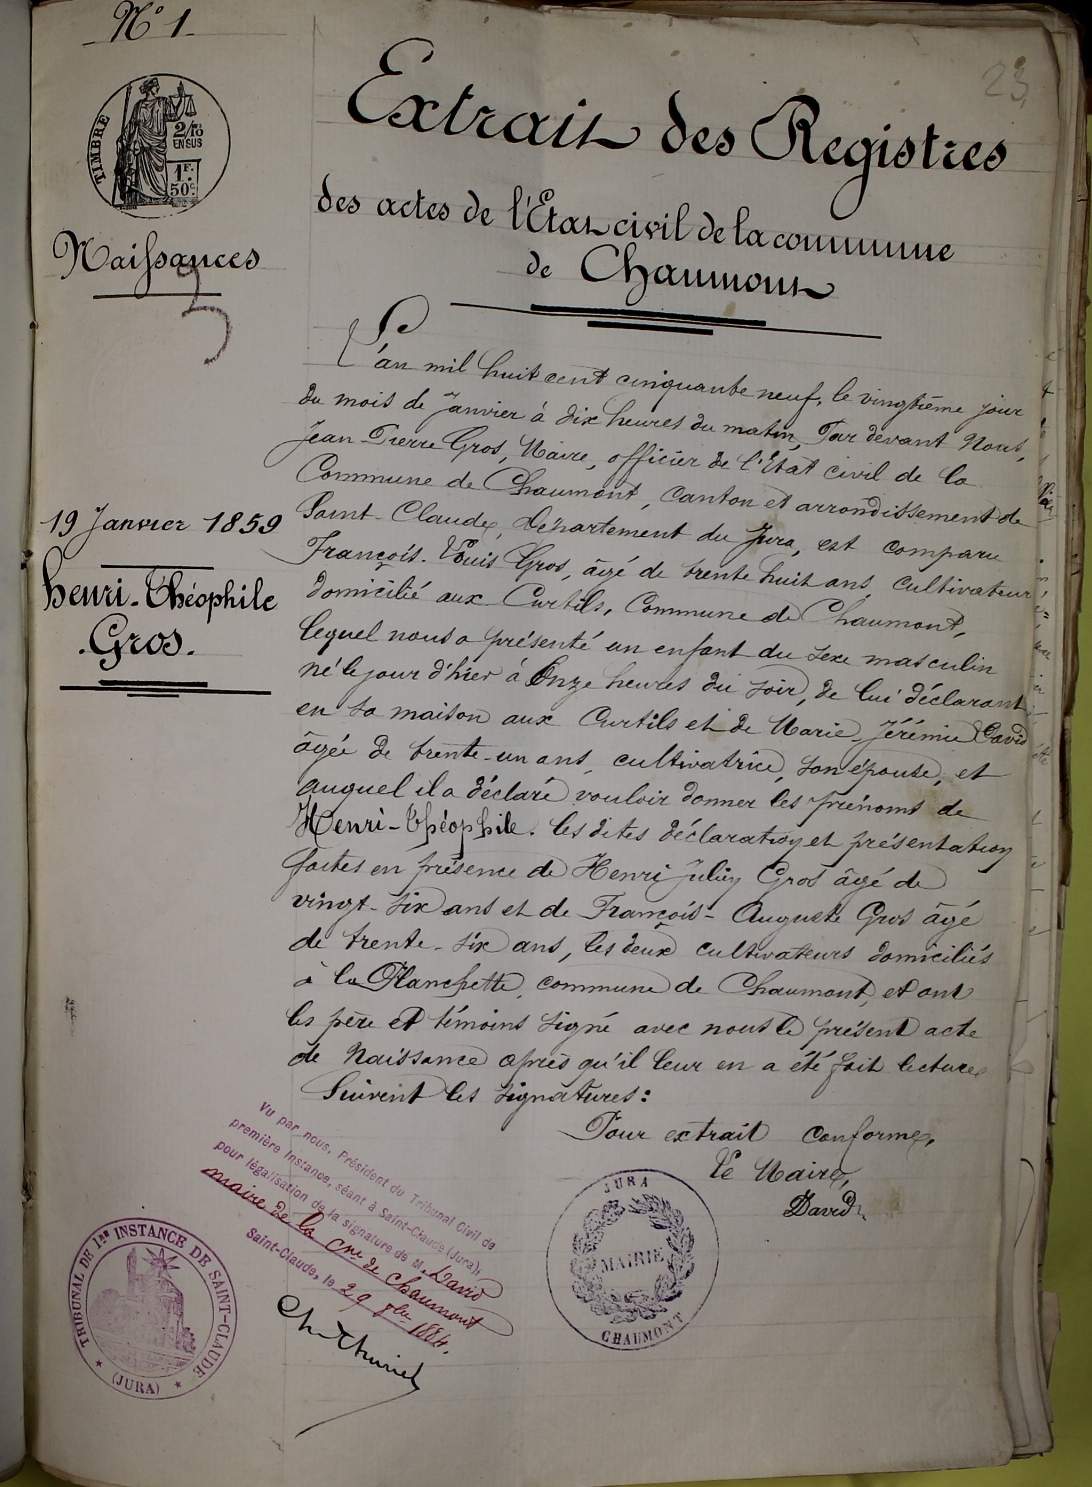 N° 1
23
TIMBRE
2/10
EN SUS
1F.
50c
Extrait des Registres
des actes de l'Etat civil de la commune
de Chaumont
Naissances
3
L'an mil huit cent cinquante neuf, le vingtième jour
du mois de Janvier à dix heures du matin, Par devant Nous,
Jean-Pierre Gros, Maire, officier de l'Etat civil de la
Commune de Chaumont, canton et arrondissement de
Saint-Claude, Département du Jura, est comparu
François-Louis Gros, âgé de trente huit ans, cultivateur
domicilié aux Curtils, Commune de Chaumont,
lequel nous a présenté un enfant du sexe masculin
né le jour d'hier à Onze heures du soir, de lui déclarant
en sa maison aux Curtils et de Marie-Jérémie David
âgée de trente-un ans, cultivatrice, son épouse, et
auquel il a déclaré vouloir donner les prénoms de
Henri-Théophile. les dites déclaration et présentation
faites en présence de Henri Julien Gros âgé de
vingt-six ans et de François-Auguste Gros âgé
de trente-six ans, les deux cultivateurs domiciliés
à la Planchette, commune de Chaumont, et ont
les père et témoins signé avec nous le présent acte
de Naissance après qu'il leur en a été fait lecture
Suivent les signatures:
19 Janvier 1859
Henri-Théophile
Gros.
Pour extrait conforme,
Le Maire,
David
Vu par nous, Président du Tribunal Civil de
première Instance, séant à Saint-Claude (Jura),
pour légalisation de la signature de M. David
maire de la Cne de Chaumont
Saint-Claude, le 29 1884.
TRIBUNAL DE 1RE INSTANCE DE SAINT-CLAUDE
(JURA)
JURA
MAIRIE
CHAUMONT